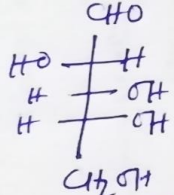 CHO
HO H
H OH
H OH
CH₂OH